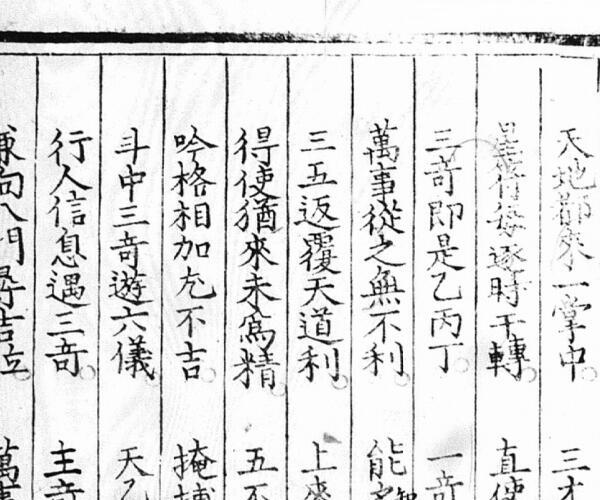 天地都來一掌中。三才
星符每逐時干轉。直使
三竒即是乙丙丁。一竒
萬事從之無不利。能
三五返覆天道利。上
得使猶來未爲精。五不
吟格相加尤不吉。掩捕
斗中三竒遊六儀。天乙
行人信息遇三竒。主竒
兼向八門尋吉位。萬事